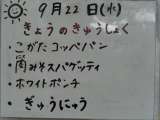 9月22日(水)
きょうのきゅうしょく
・こがたコッペパン
・みそスパゲッティ
・ホワイトポンチ
・ぎゅうにゅう